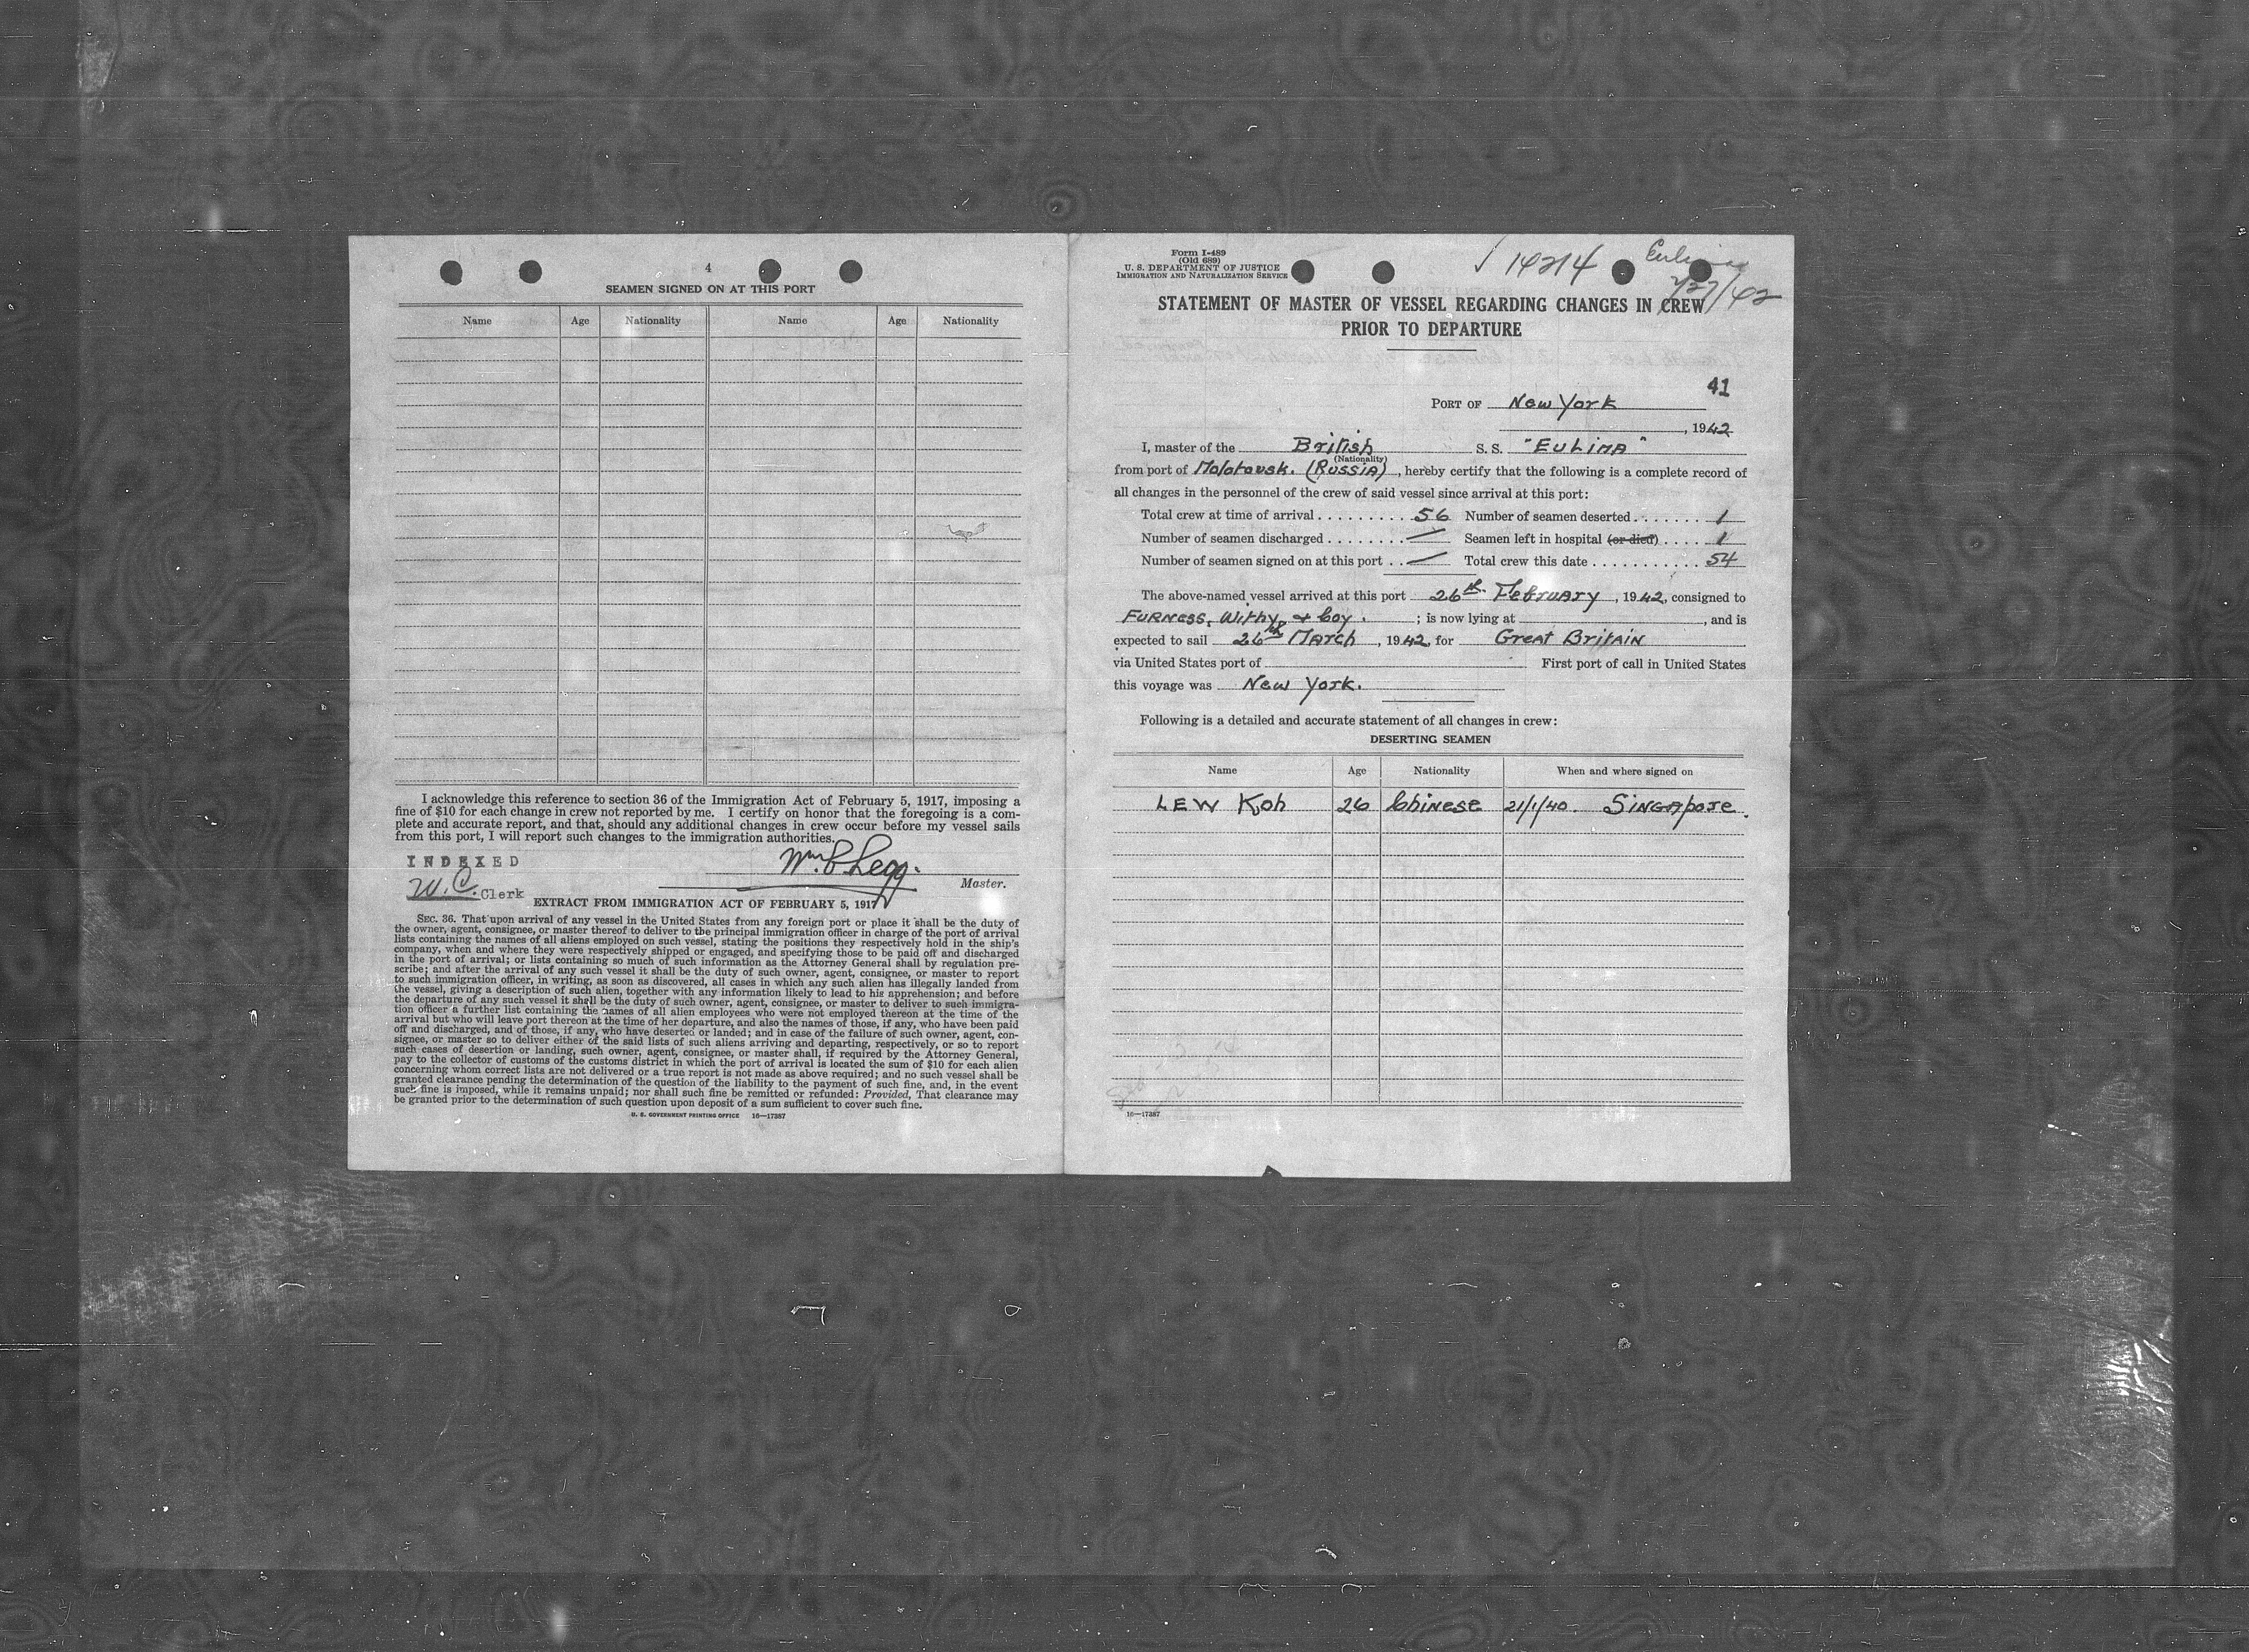 4
SEAMEN SIGNED ON AT THIS PORT
Name Age Nationality Name Age Nationality
I acknowledge this reference to section 36 of the Immigration Act of February 5, 1917, imposing a
fine of $10 for each change in crew not reported by me. I certify on honor that the foregoing is a com-
plete and accurate report, and that, should any additional changes in crew occur before my vessel sails
from this port, I will report such changes to the immigration authorities.
INDEXED
W. C. Clerk
Legg.
Master.
EXTRACT FROM IMMIGRATION ACT OF FEBRUARY 5, 1917
SEC. 36. That upon arrival of any vessel in the United States from any foreign port or place it shall be the duty of
the owner, agent, consignee, or master thereof to deliver to the principal immigration officer in charge of the port of arrival
lists containing the names of all aliens employed on such vessel, stating the positions they respectively hold in the ship's
company, when and where they were respectively shipped or engaged, and specifying those to be paid off and discharged
in the port of arrival; or lists containing so much of such information as the Attorney General shall by regulation pre-
scribe; and after the arrival of any such vessel it shall be the duty of such owner, agent, consignee, or master to report
to such immigration officer, in writing, as soon as discovered, all cases in which any such alien has illegally landed from
the vessel, giving a description of such alien, together with any information likely to lead to his apprehension; and before
the departure of any such vessel it shall be the duty of such owner, agent, consignee, or master to deliver to such immigra-
tion officer a further list containing the names of all alien employees who were not employed thereon at the time of the
arrival but who will leave port thereon at the time of her departure, and also the names of those, if any, who have been paid
off and discharged, and of those, if any, who have deserted or landed; and in case of the failure of such owner, agent, con-
signee, or master so to deliver either of the said lists of such aliens arriving and departing, respectively, or so to report
such cases of desertion or landing, such owner, agent, consignee, or master shall, if required by the Attorney General,
pay to the collector of customs of the customs district in which the port of arrival is located the sum of $10 for each alien
concerning whom correct lists are not delivered or a true report is not made as above required; and no such vessel shall be
granted clearance pending the determination of the question of the liability to the payment of such fine, and, in the event
such fine is imposed, while it remains unpaid; nor shall such fine be remitted or refunded: Provided, That clearance may
be granted prior to the determination of such question upon deposit of a sum sufficient to cover such fine.
U. S. GOVERNMENT PRINTING OFFICE 16—17387
Form I-489
(Old 689)
U. S. DEPARTMENT OF JUSTICE
IMMIGRATION AND NATURALIZATION SERVICE
14214
Eulima
2/27/42
STATEMENT OF MASTER OF VESSEL REGARDING CHANGES IN CREW
PRIOR TO DEPARTURE
41
PORT OF New York
, 1942
I, master of the British S. S. "EULIMA"
(Nationality)
from port of Molotovsk. (RUSSIA), hereby certify that the following is a complete record of
all changes in the personnel of the crew of said vessel since arrival at this port:
Total crew at time of arrival 56 Number of seamen deserted 1
Number of seamen discharged — Seamen left in hospital (or died) 1
Number of seamen signed on at this port — Total crew this date 54
The above-named vessel arrived at this port 26th February, 1942, consigned to
FURNESS, Withy, & Coy. ; is now lying at , and is
expected to sail 26th March, 1942, for Great Britain
via United States port of First port of call in United States
this voyage was New York.
Following is a detailed and accurate statement of all changes in crew:
DESERTING SEAMEN
Name Age Nationality When and where signed on
LEW Koh 26 Chinese 21/1/40. Singapore.
16—17387